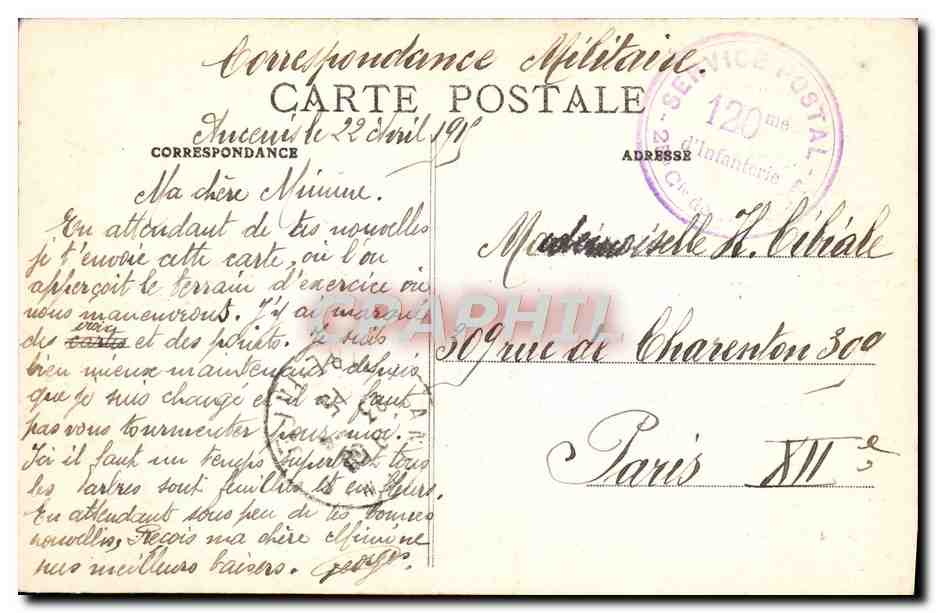 Correspondance Militaire.
CARTE POSTALE
Ancenis le 22 Avril 1915
CORRESPONDANCE
ADRESSE
SERVICE POSTAL
120me
d'Infanterie
Ma chère Mimine.
En attendant de tes nouvelles
je t'envoie cette carte, où l'on
apperçoit le terrain d'exercice où
nous manoeuvrons. J'y ai marqué
des croix et des points. Je suis
bien mieux maintenant depuis
que je suis changé et il ne faut
pas vous tourmenter pour moi.
Ici il faut un temps superbe et tous
les arbres sont feuillus et en fleurs.
En attendant sous peu de tes bonnes
nouvelles, Reçois ma chère Mimine
mes meilleurs baisers. Georges.
Mademoiselle H. Cibiale
309 rue de Charenton 309
Paris XIIe
CARAPHIL